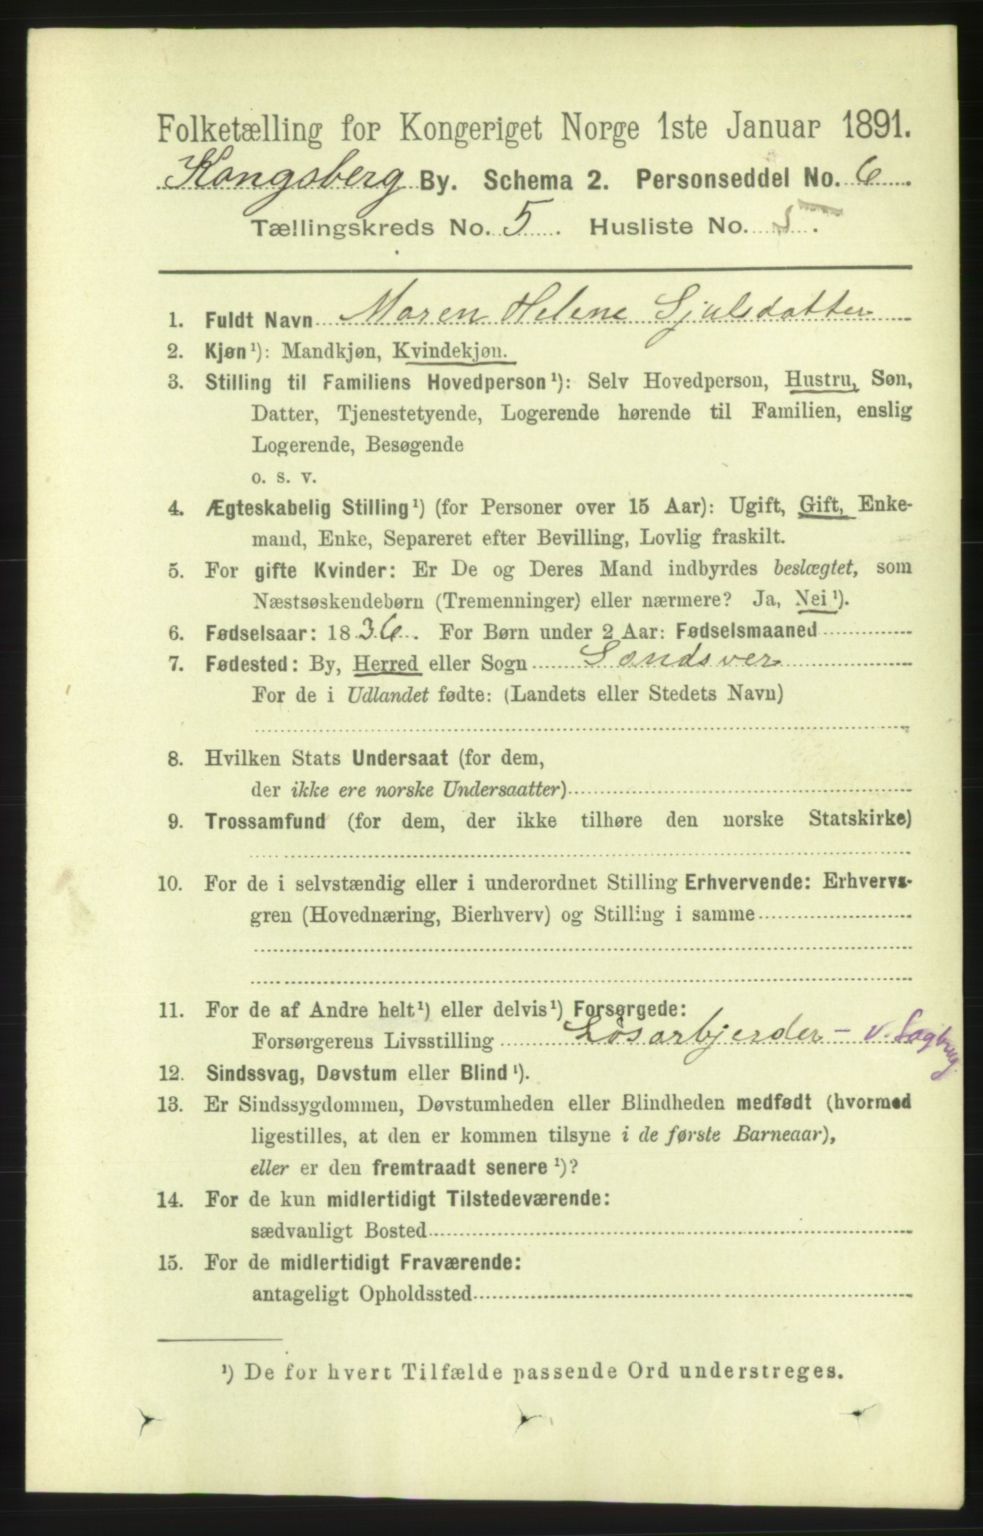 Folketælling for Kongeriget Norge 1ste Januar 1891.
Kongsberg By. Schema 2. Personseddel No. 6.
Tællingskreds No. 5. Husliste No. 5.
1. Fuldt Navn Maren Helene Sjulsdatter
2. Kjøn¹): Mandkjøn, Kvindekjøn.
3. Stilling til Familiens Hovedperson¹): Selv Hovedperson, Hustru, Søn,
Datter, Tjenestetyende, Logerende hørende til Familien, enslig
Logerende, Besøgende
o. s. v.
4. Ægteskabelig Stilling¹) (for Personer over 15 Aar): Ugift, Gift, Enke-
mand, Enke, Separeret efter Bevilling, Lovlig fraskilt.
5. For gifte Kvinder: Er De og Deres Mand indbyrdes beslægtet, som
Næstsøskendebørn (Tremenninger) eller nærmere? Ja, Nei¹).
6. Fødselsaar: 1836. For Børn under 2 Aar: Fødselsmaaned
7. Fødested: By, Herred eller Sogn Sandsver
For de i Udlandet fødte: (Landets eller Stedets Navn)
8. Hvilken Stats Undersaat (for dem,
der ikke ere norske Undersaatter)
9. Trossamfund (for dem, der ikke tilhøre den norske Statskirke)
10. For de i selvstændig eller i underordnet Stilling Erhvervende: Erhvervs-
gren (Hovednæring, Bierhverv) og Stilling i samme
11. For de af Andre helt¹) eller delvis¹) Forsørgede:
Forsørgerens Livsstilling Løsarbjerder - v. Sagbrug
12. Sindssvag, Døvstum eller Blind¹).
13. Er Sindssygdommen, Døvstumheden eller Blindheden medfødt (hvormed
ligestilles, at den er kommen tilsyne i de første Barneaar),
eller er den fremtraadt senere¹)?
14. For de kun midlertidigt Tilstedeværende:
sædvanligt Bosted
15. For de midlertidigt Fraværende:
antageligt Opholdssted
¹) De for hvert Tilfælde passende Ord understreges.